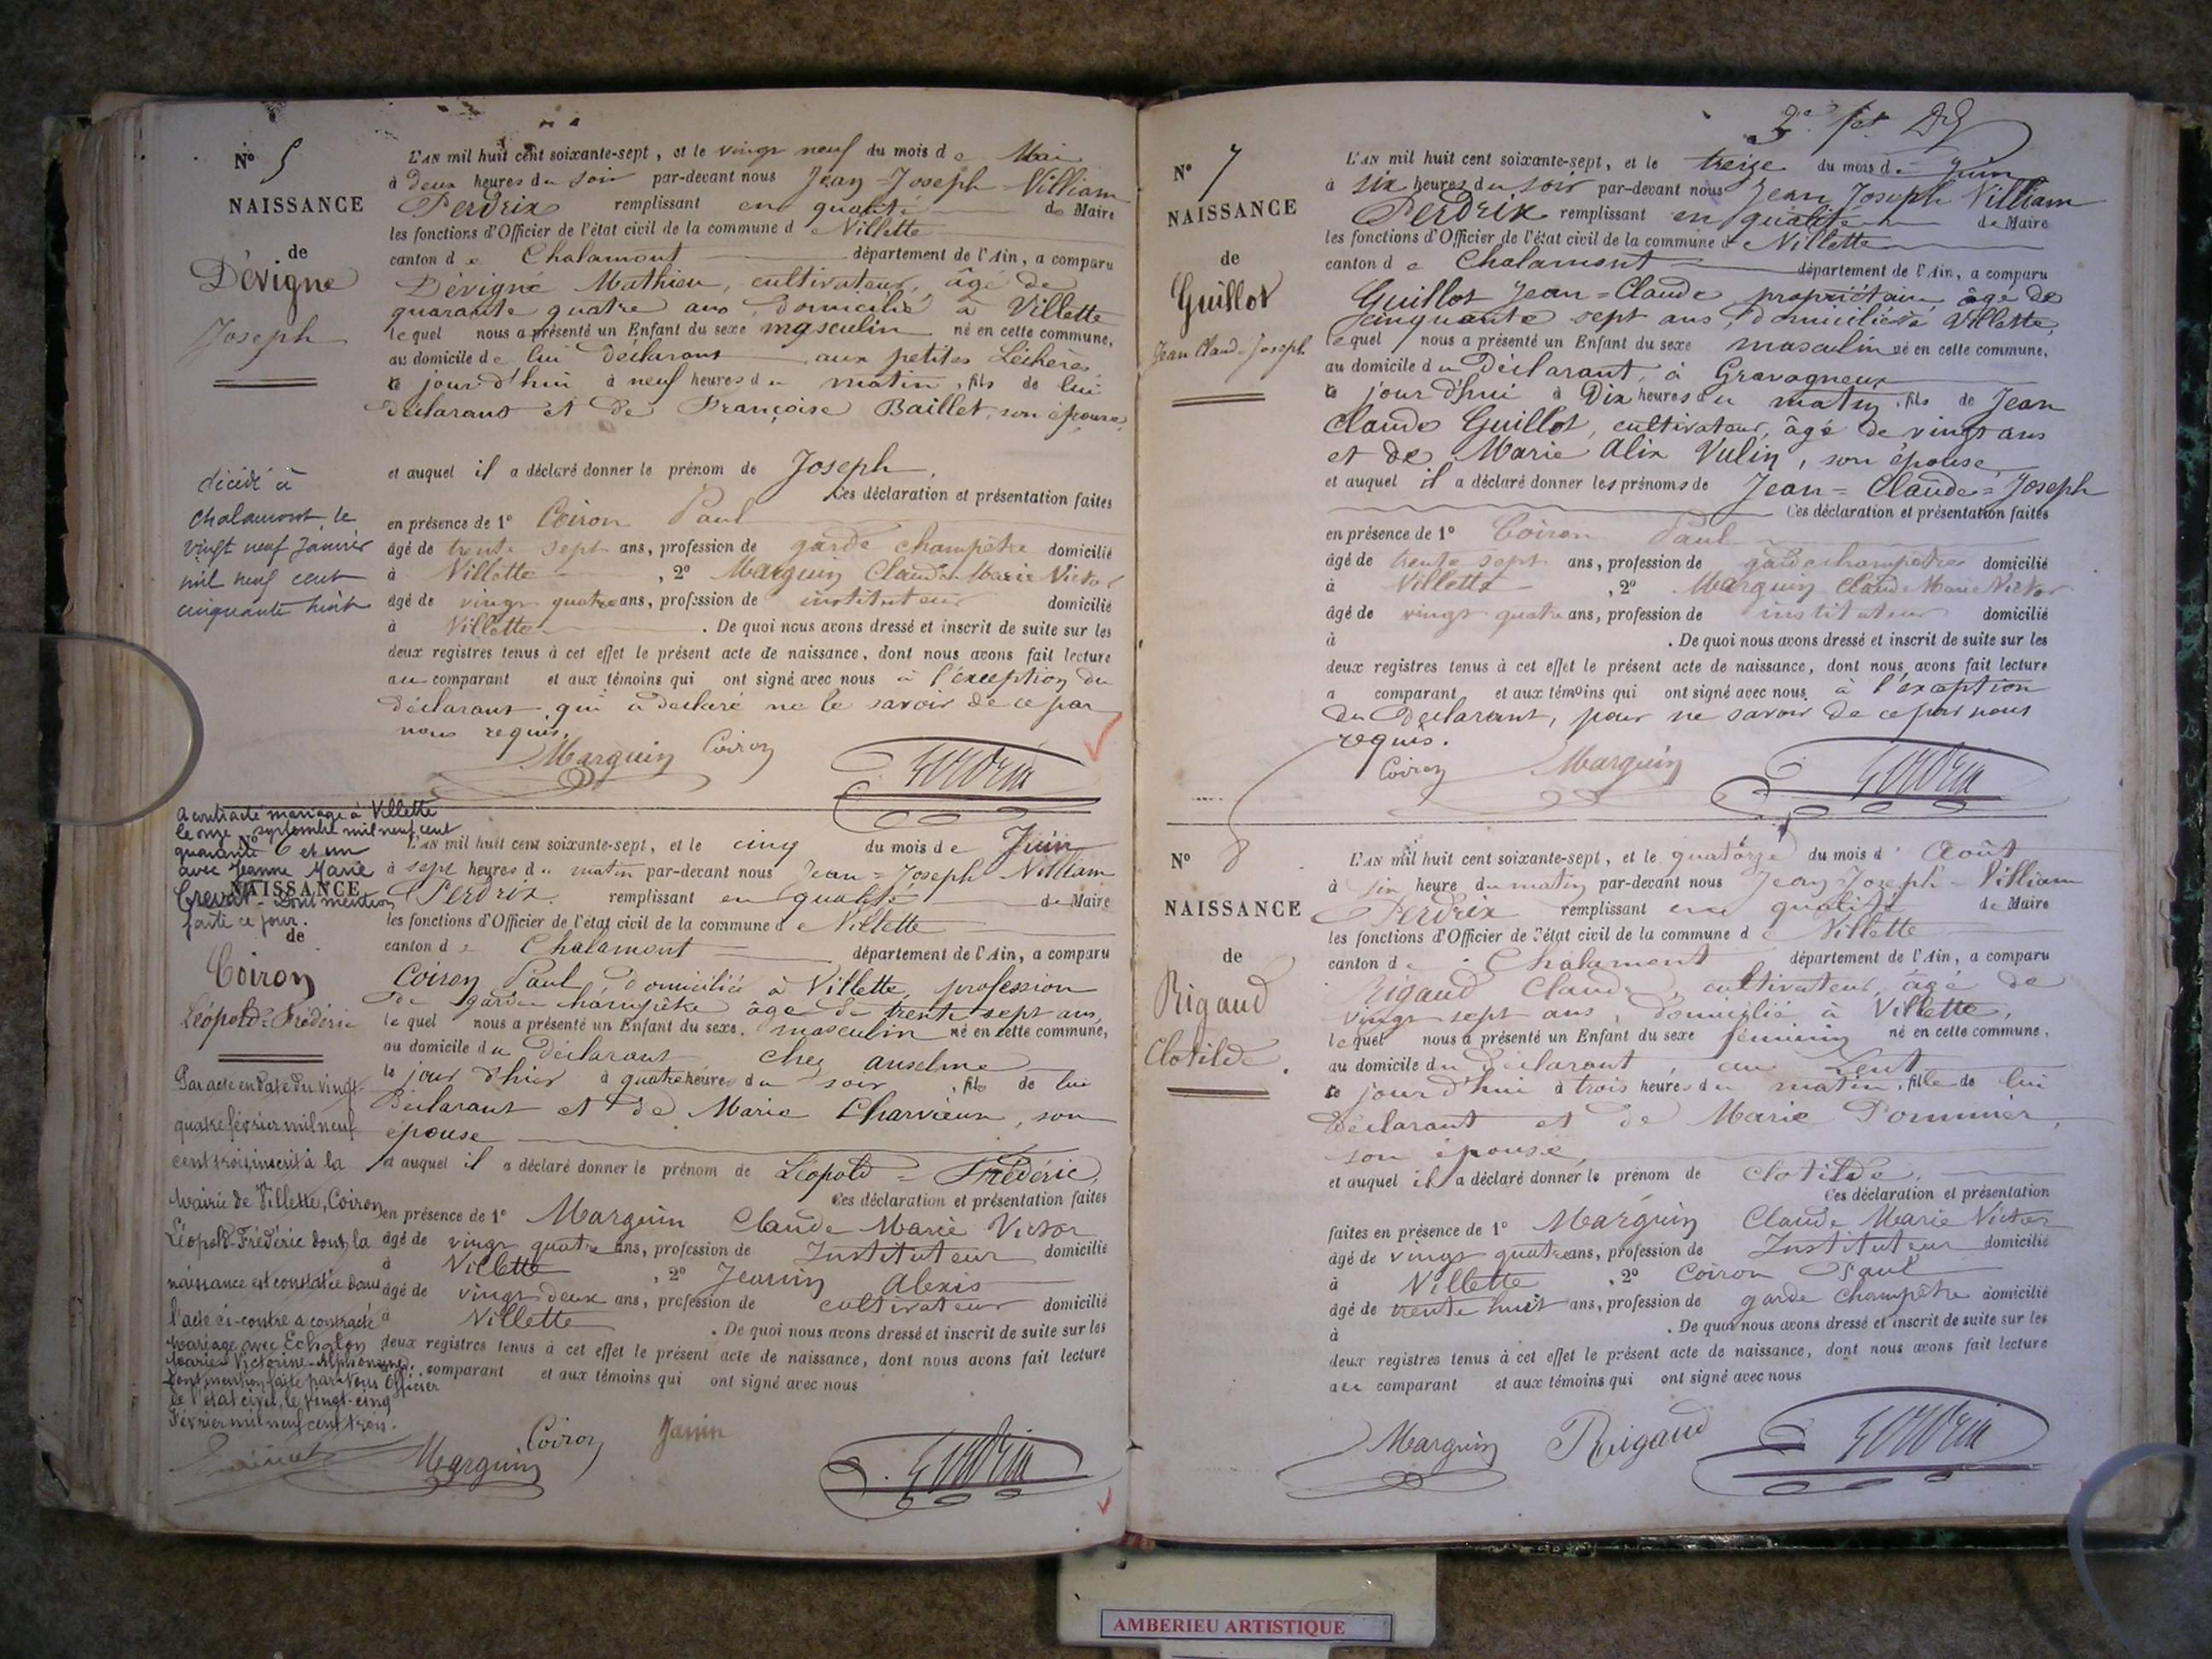 N° 5
NAISSANCE
de
Dévigne
Joseph
L'AN mil huit cent soixante-sept, et le vingt neuf du mois de Mai
à deux heures du soir par-devant nous Jean-Joseph William
Perdrix remplissant en qualité de Maire
les fonctions d'Officier de l'état civil de la commune de Villette
canton de Chalamont département de l'Ain, a comparu
Dévigne Mathieu, cultivateur, âgé de
quarante quatre ans, domicilié à Villette
lequel nous a présenté un Enfant du sexe masculin né en cette commune,
au domicile de lui déclarant aux petites Léchères,
ce jour d'hui à neuf heures du matin, fils de lui
déclarant et de Françoise Baillet, son épouse,
et auquel il a déclaré donner le prénom de Joseph.
Ces déclaration et présentation faites
en présence de 1° Coiron Paul
âgé de trente sept ans, profession de garde champêtre domicilié
à Villette, 2° Marguin Claude Marie Victor
âgé de vingt quatre ans, profession de instituteur domicilié
à Villette. De quoi nous avons dressé et inscrit de suite sur les
deux registres tenus à cet effet le présent acte de naissance, dont nous avons fait lecture
au comparant et aux témoins qui ont signé avec nous à l'exception du
déclarant, qui a déclaré ne le savoir de ce par
nous requis.
Marguin Coiron Perdrix
décédé à
Chalamont, le
vingt neuf Janvier
mil neuf cent
cinquante huit
A contracté mariage à Villette
le onze septembre mil neuf cent
quarante et un
avec Jeanne Marie
Crevat. Dont mention
faite ce jour.
N° 6
NAISSANCE
de
Coiron
Léopold-Frédéric
L'AN mil huit cent soixante-sept, et le cinq du mois de Juin
à sept heures du matin par-devant nous Jean-Joseph William
Perdrix remplissant en qualité de Maire
les fonctions d'Officier de l'état civil de la commune de Villette
canton de Chalamont département de l'Ain, a comparu
Coiron Paul, domicilié à Villette, profession
de garde champêtre âgé de trente sept ans,
lequel nous a présenté un Enfant du sexe masculin né en cette commune,
au domicile du déclarant chez Anselme
le jour d'hier à quatre heures du soir, fils de lui
Déclarant et de Marie Charvieux, son
épouse
et auquel il a déclaré donner le prénom de Léopold-Frédéric,
Ces déclaration et présentation faites
en présence de 1° Marguin Claude Marie Victor
âgé de vingt quatre ans, profession de Instituteur domicilié
à Villette, 2° Jeanin Alexis
âgé de vingt deux ans, profession de cultivateur domicilié
à Villette. De quoi nous avons dressé et inscrit de suite sur les
deux registres tenus à cet effet le présent acte de naissance, dont nous avons fait lecture
comparant et aux témoins qui ont signé avec nous
Marguin Coiron Janin Perdrix
Par acte en date du vingt-
quatre février mil neuf
cent trois inscrit à la
Mairie de Villette, Coiron
Léopold-Frédéric dont la
naissance est constatée dans
l'acte ci-contre a contracté
mariage avec Echalon
Marie Victorine Alphonsine.
Dont mention faite par Nous Officier
de l'état civil, le vingt-cinq
Février mil neuf cent trois.
N° 7
NAISSANCE
de
Guillot
Jean Claude Joseph
L'AN mil huit cent soixante-sept, et le treize du mois de Juin
à six heures du soir par-devant nous Jean Joseph William
Perdrix remplissant en qualité de Maire
les fonctions d'Officier de l'état civil de la commune de Villette
canton de Chalamont département de l'Ain, a comparu
Guillot Jean-Claude, propriétaire, âgé de
cinquante sept ans, domicilié à Villette,
lequel nous a présenté un Enfant du sexe masculin né en cette commune,
au domicile du Déclarant, à Gravagneux
ce jour d'hui à Dix heures du matin, fils de Jean
Claude Guillot, cultivateur, âgé de vingt ans
et de Marie Alix Vulin, son épouse
et auquel il a déclaré donner les prénoms de Jean-Claude-Joseph
Ces déclaration et présentation faites
en présence de 1° Coiron Paul
âgé de trente sept ans, profession de garde champêtre domicilié
à Villette, 2° Marguin Claude Marie Victor
âgé de vingt quatre ans, profession de instituteur domicilié
à . De quoi nous avons dressé et inscrit de suite sur les
deux registres tenus à cet effet le présent acte de naissance, dont nous avons fait lecture
a comparant et aux témoins qui ont signé avec nous à l'exception
du Déclarant, pour ne savoir de ce par nous
requis.
Coiron Marguin Perdrix
N° 8
NAISSANCE
de
Rigaud
Clotilde.
L'AN mil huit cent soixante-sept, et le quatorze du mois d' Août
à six heure du matin par-devant nous Jean-Joseph-William
Perdrix remplissant en qualité de Maire
les fonctions d'Officier de l'état civil de la commune de Villette
canton de Chalamont département de l'Ain, a comparu
Rigaud Claude, cultivateur, âgé de
vingt sept ans, domicilié à Villette,
lequel nous a présenté un Enfant du sexe féminin né en cette commune,
au domicile du déclarant, au
ce jour d'hui à trois heures du matin, fille de lui
déclarant et de Marie Pommier,
son épouse,
et auquel il a déclaré donner le prénom de Clotilde.
Ces déclaration et présentation
faites en présence de 1° Marguin Claude Marie Victor
âgé de vingt quatre ans, profession de Instituteur domicilié
à Villette, 2° Coiron Paul
âgé de trente huit ans, profession de garde champêtre domicilié
à . De quoi nous avons dressé et inscrit de suite sur les
deux registres tenus à cet effet le présent acte de naissance, dont nous avons fait lecture
au comparant et aux témoins qui ont signé avec nous
Marguin Rigaud Perdrix
AMBERIEU ARTISTIQUE